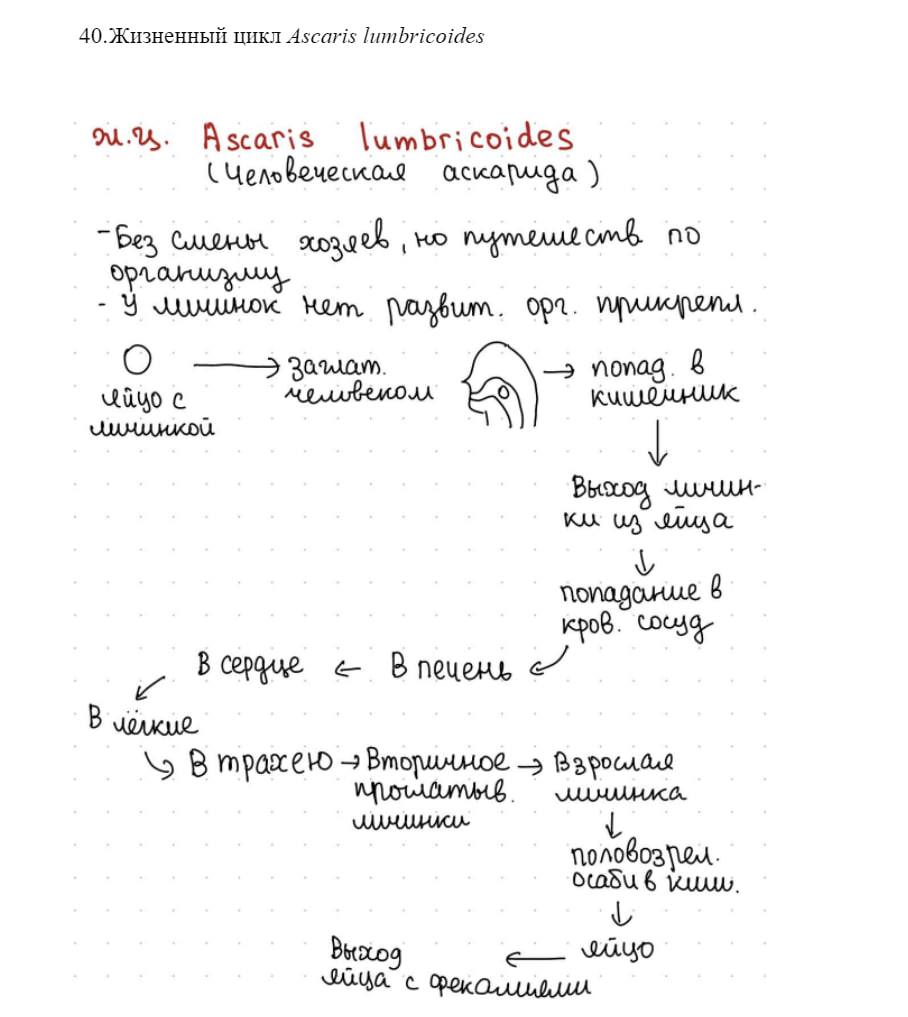 40.Жизненный цикл Ascaris lumbricoides
ж.ц. Ascaris lumbricoides
(Человеческая аскарида)
-Без смены хозяев, но путешеств по
организму
- У личинок нет развит. орг. прикрепл.
яйцо с
личинкой
заглат.
человеком
попад. в
кишечник
Выход личин-
ки из яйца
попадание в
кров. сосуд
В печень
В сердце
В лёгкие
В трахею
Вторичное
проглатыв.
личинки
Взрослая
личинка
половозрел.
особи в киш.
яйцо
Выход
яйца с фекалиями